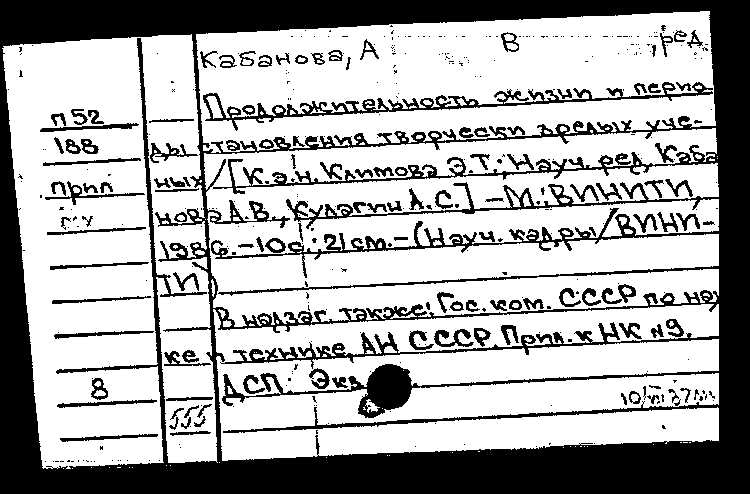 Кабанова, А В , ред.
п52 Продолжительность жизни и перио-
188 ды становления творчески зрелых уче-
прил ных / [К.э.н. Климова Э.Т.; Науч. ред. Каба
нова А.В., Кулагин А.С.] – М.: ВИНИТИ,
1986. – 10 с.; 21 см. – (Науч. кадры / ВИНИ-
ТИ)
В надзаг. также: Гос. ком. СССР по нау
ке и технике, АН СССР. Прил. к НК №9.
8 ДСП: Экз
555